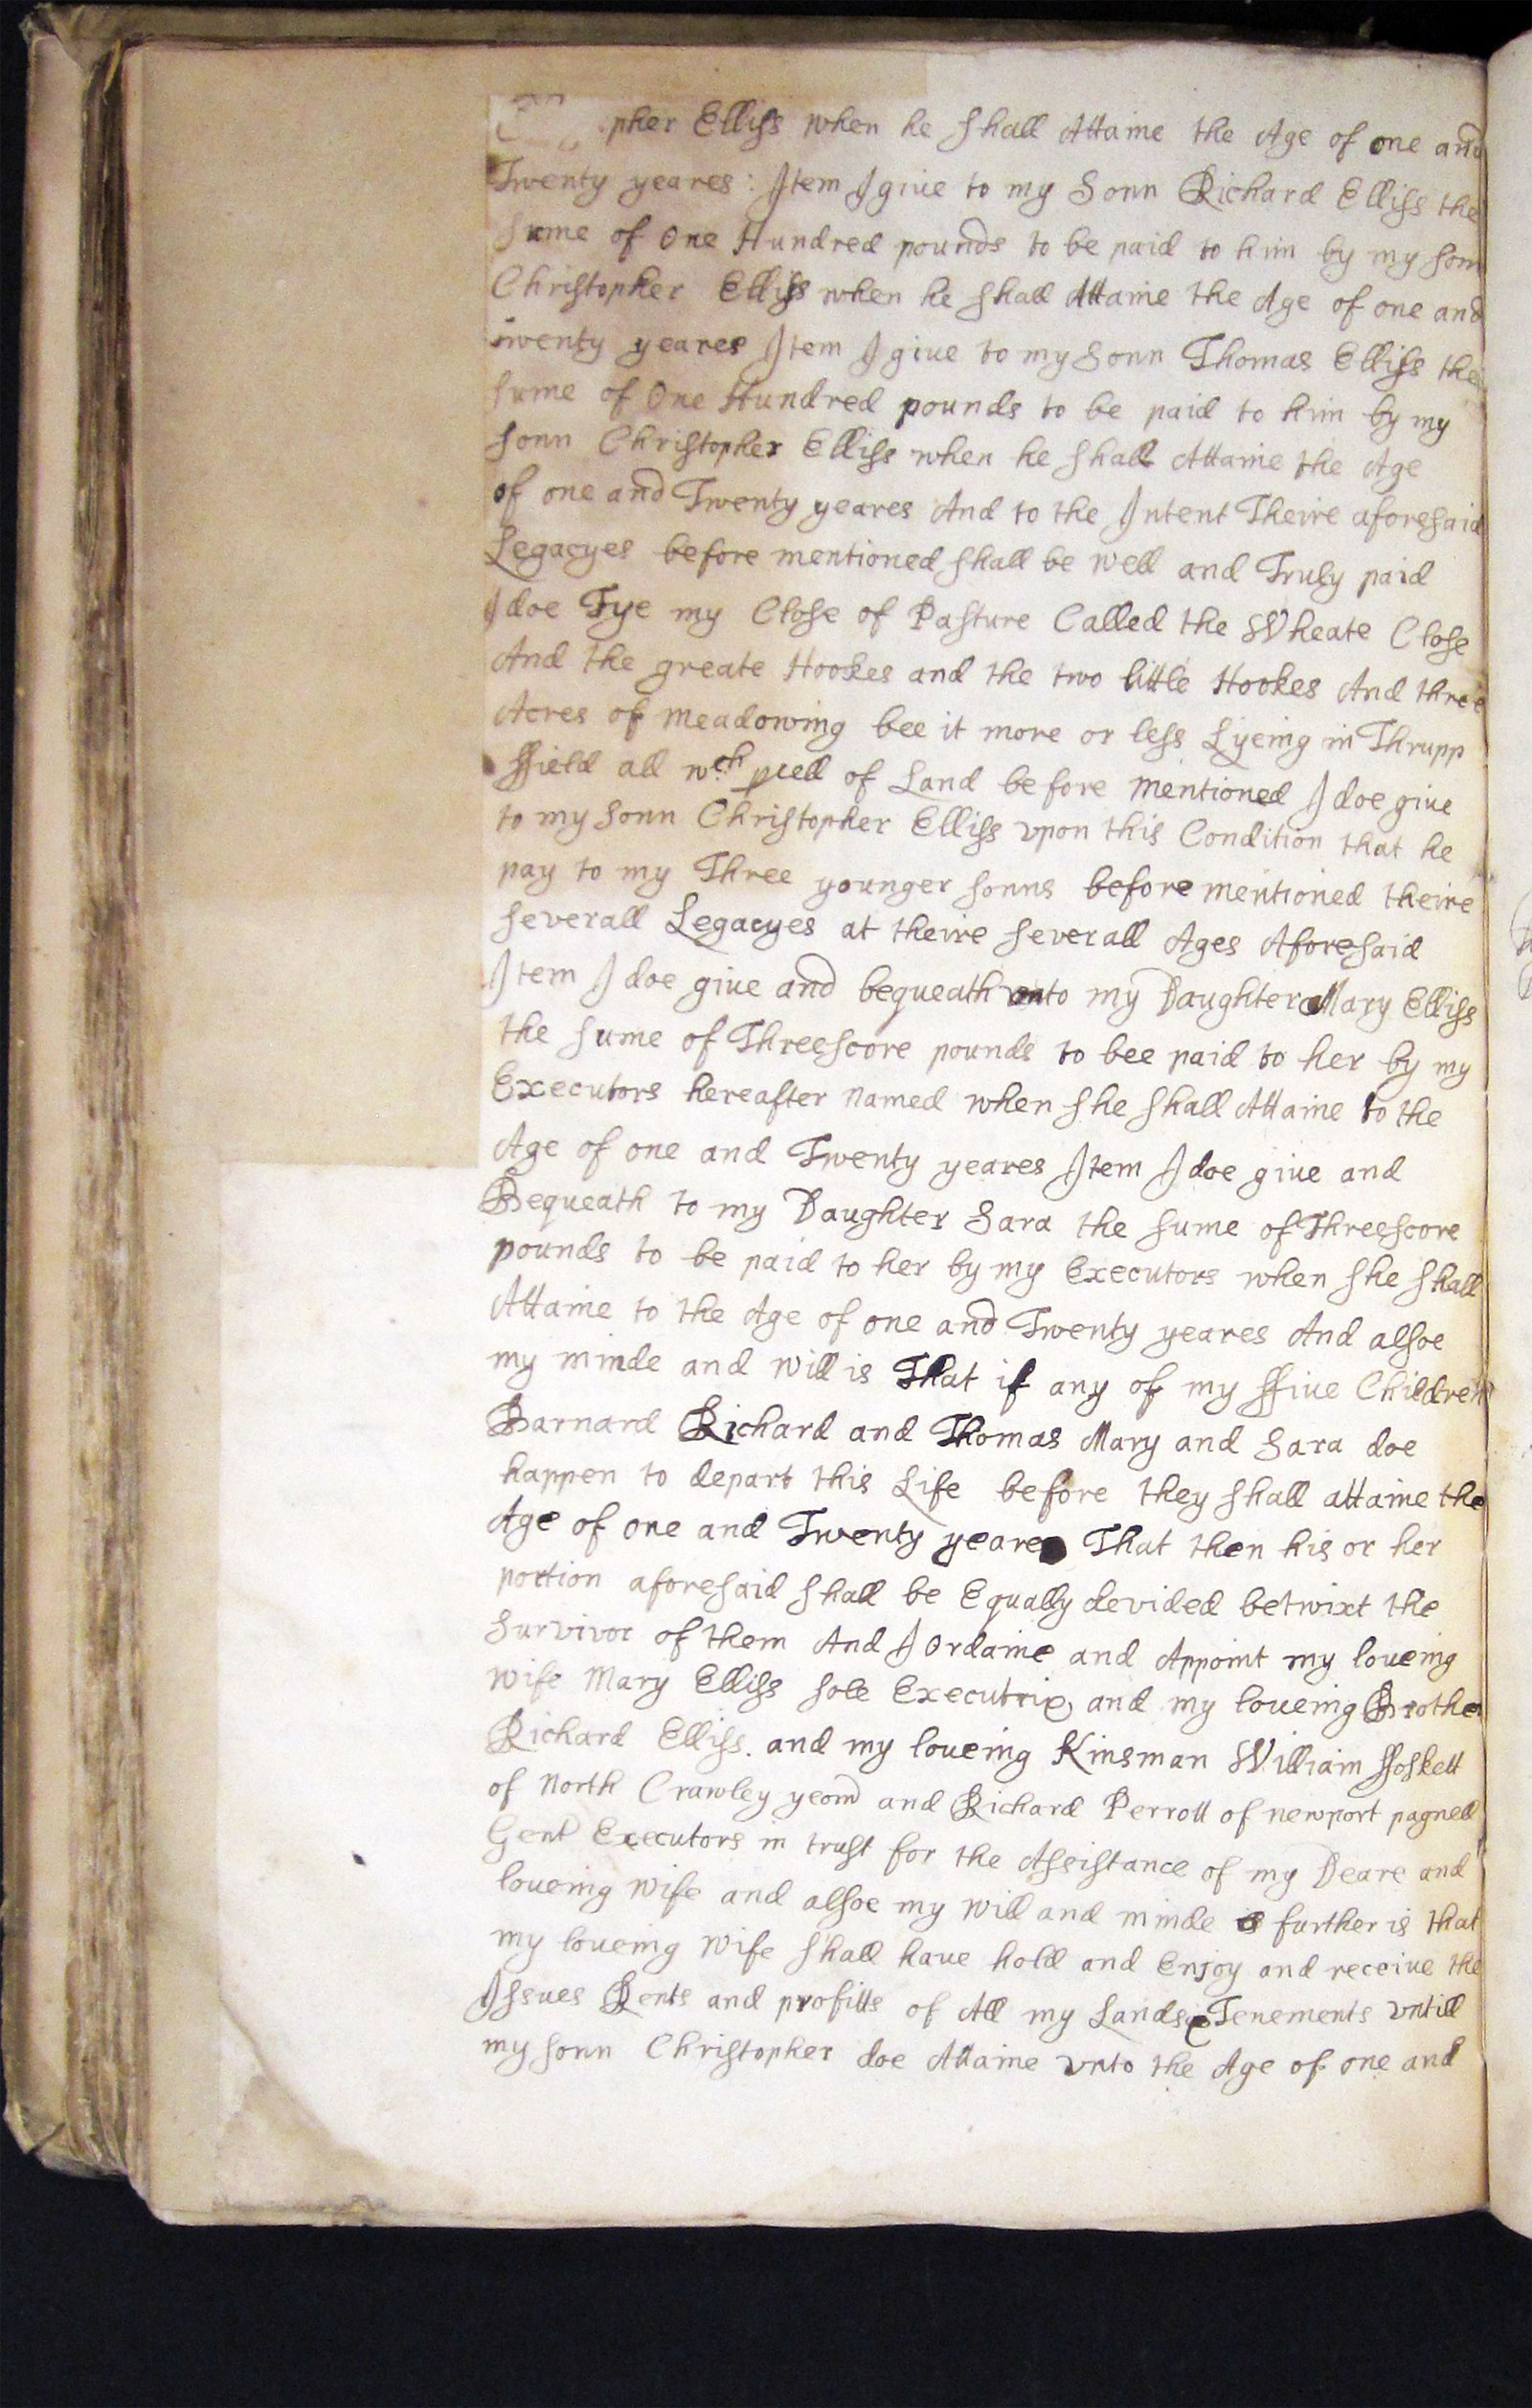 pher Elliss when he shall Attaine the Age of one and
Twenty yeares: Item I give to my Sonn Richard Elliss the
sume of One Hundred pounds to be paid to him by my sonn
Christopher Elliss when he shall Attaine the Age of one and
twenty yeares Item I give to my Sonn Thomas Elliss the
sume of One Hundred pounds to be paid to him by my
sonn Christopher Elliss when he shall Attaine the Age
of one and Twenty yeares And to the Intent Theire aforesaid
Legacyes before mentioned shall be well and Truly paid
I doe Tye my Close of Pasture Called the Wheate Close
And the greate Hookes and the two little Hookes And three
Acres of meadowing bee it more or less Lyeing in Thrupp
ffield all wch pcell of Land before mentioned I doe giue
to my sonn Christopher Elliss vpon this Condition that he
pay to my Three younger sonns before mentioned theire
severall Legacyes at theire severall Ages Aforesaid
Item I doe giue and bequeath vnto my Daughter Mary Elliss
the sume of Threescore pounds to bee paid to her by my
Executors hereafter named when she shall Attaine to the
Age of one and Twenty yeares Item I doe giue and
Bequeath to my Daughter Sara the sume of Threescore
pounds to be paid to her by my Executors when she shall
Attaine to the Age of one and Twenty yeares And alsoe
my minde and will is That if any of my ffiue Children
Barnard Richard and Thomas Mary and Sara doe
happen to depart this Life before they shall attaine the
Age of one and Twenty yeares That then his or her
portion aforesaid shall be Equally devided betwixt the
Survivor of them And I Ordaine and Appoint my loueing
wife Mary Elliss sole Executrix and my loueing Brother
Richard Elliss. and my loueing Kinsman William ffoskett
of North Crawley yeom and Richard Perrott of newport pagnell
Gent Executors in trust for the Assistance of my Deare and
loueing wife and alsoe my will and minde is further is that
my loueing wife shall haue hold and Enjoy and receiue the
Issues Rents and profitts of All my Lands & Tenements vntill
my sonn Christopher doe Attaine vnto the Age of one and